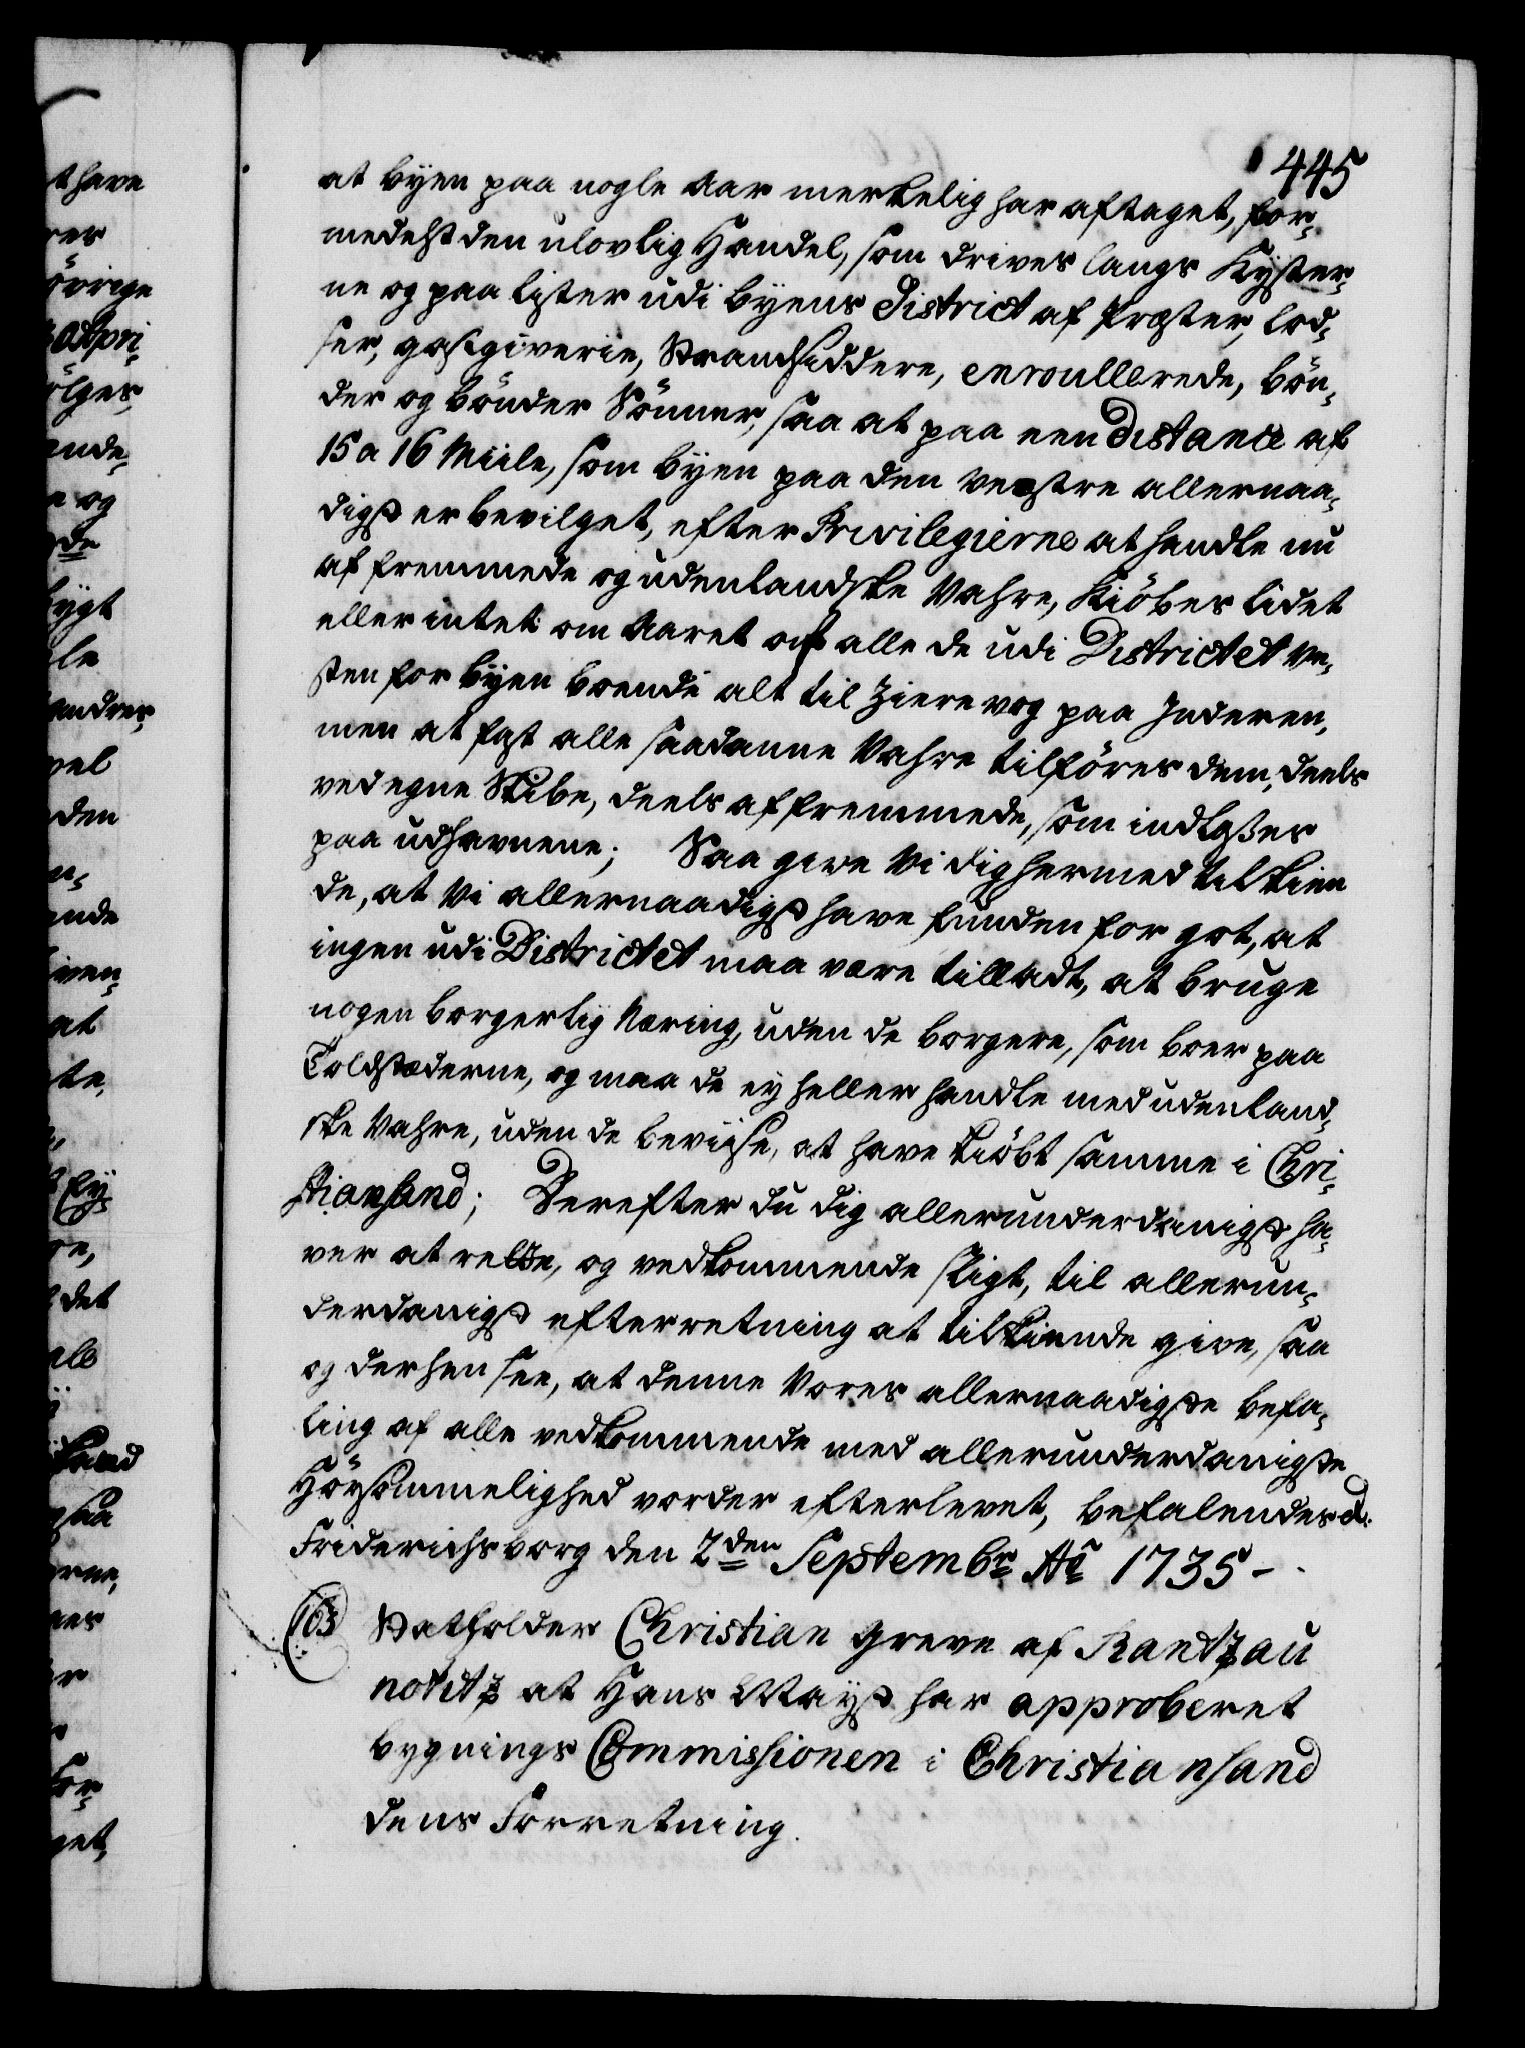 445
at byen paa nogle Aar merkelig har aftaget, for-
medelst den ulovlig Handel, som drives langs Kyster-
ne og paa Lister udi byens District af Præster, Lod-
ser, gastgiverie, Strandsiddere, enroullerede, bön-
der og bönder Sönner, saa at paa een distance af
15 a 16 Miile, som byen paa den Vestre allernaa-
digst er bevilget, efter Privilegierne at handle nu
af fremmede og udenlandske Vahre, Kiöbes lidet
eller intet om Aaret af alle de udi Districtet Ve-
sten for byen boende alt til Ziere vog paa Jederen,
men at fast alle saadanne Vahre tilföres dem, deels
ved egne Skibe, deels af fremmede, som indlaßes
paa udhavnene; Saa give Vi dig hermed tilkien
de, at Vi allernaadigst have funden for got, at
ingen udi Districtet maa være tilladt, at bruge
nogen borgerlig Næring, uden de borgere, som boer paa
Toldstæderne, og maa de ey heller handle med udenland-
ske Vahre, uden de beviise, at have kiöbt samme i Chri-
stiansand; Derefter du dig allerunderdanigst ha-
ver at rette, og vedkommende sligt, til allerun-
derdanigst efterretning at tilkiende give, saa
og derhen see, at denne Vores allernaadigste befa-
ling af alle vedkommende med allerunderdanigste
Höysommelighed vorder efterlevet, befalendes d.
Friderichsborg den 2den Septembr Ao 1735 -
163 Statholder Christian Greve af Rantzau
notitz at Hans Mayst har approberet
bygnings Commissionen i Christiansand
dens Forretning.